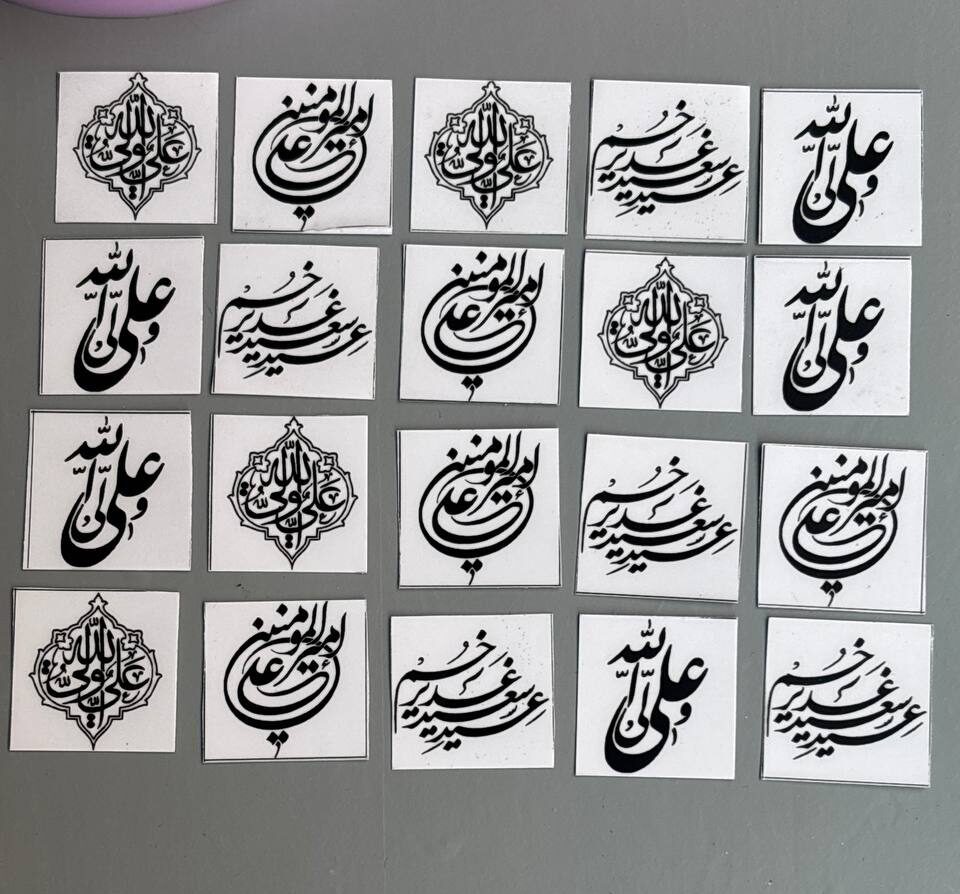 علی ولی الله
عید سعید غدیر خم
علی ولی الله
امیرالمومنین علی
علی ولی الله
علی ولی الله
علی ولی الله
امیرالمومنین علی
عید سعید غدیر خم
علی ولی الله
امیرالمومنین علی
عید سعید غدیر خم
امیرالمومنین علی
علی ولی الله
علی ولی الله
عید سعید غدیر خم
علی ولی الله
عید سعید غدیر خم
امیرالمومنین علی
علی ولی الله